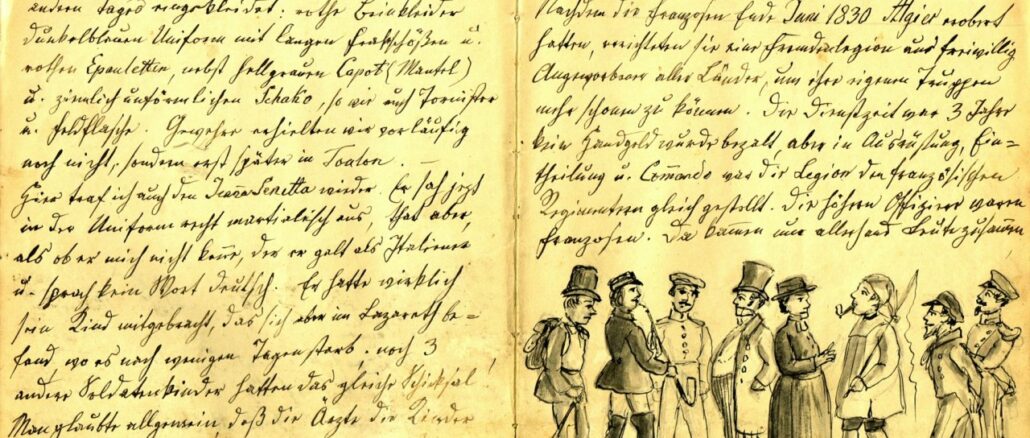 andern Tages eingekleidet. rothe Beinkleider
dunkelblauen Uniform mit langen Frakschößen u.
rothen Epauletten, nebst hellgrauen Capot (Mantel)
u. ziemlich unförmlichen Schako, so wie auch Tornister
u. Feldflasche. Gewehre erhielten wir vorläufig
noch nicht, sondern erst später in Toulon. —
Hier traf ich auch den wieder. Er sah jezt
in der Uniform recht martialisch aus, that aber,
als ob er mich nicht kenne, der er galt als Italiener
u. sprach kein Wort deutsch. Er hatte wirklich
sein Kind mitgebracht, das sich aber im Lazareth be=
fand, wo es nach wenigen Tagen starb. noch 3
andere Soldatenkinder hatten das gleiche Schicksal!
Man glaubte allgemein, daß die Ärzte die Kinder
Nachdem die Franzosen Ende Juni 1830 Algier erobert
hatten, errichteten sie eine Fremdenlegion aus freiwillig
Angeworbener aller Länder, um ihre eigenen Truppen
mehr schonen zu können. Die Dienstzeit war 3 Jahre
kein Handgeld wurde bezalt, aber in Ausrüstung, Ein=
theilung u. Comando war die Legion den französischen
Regimentern gleich gestellt. Die höhern Offiziere waren
Franzosen. Da kamen nun allerhand Leute zusamen